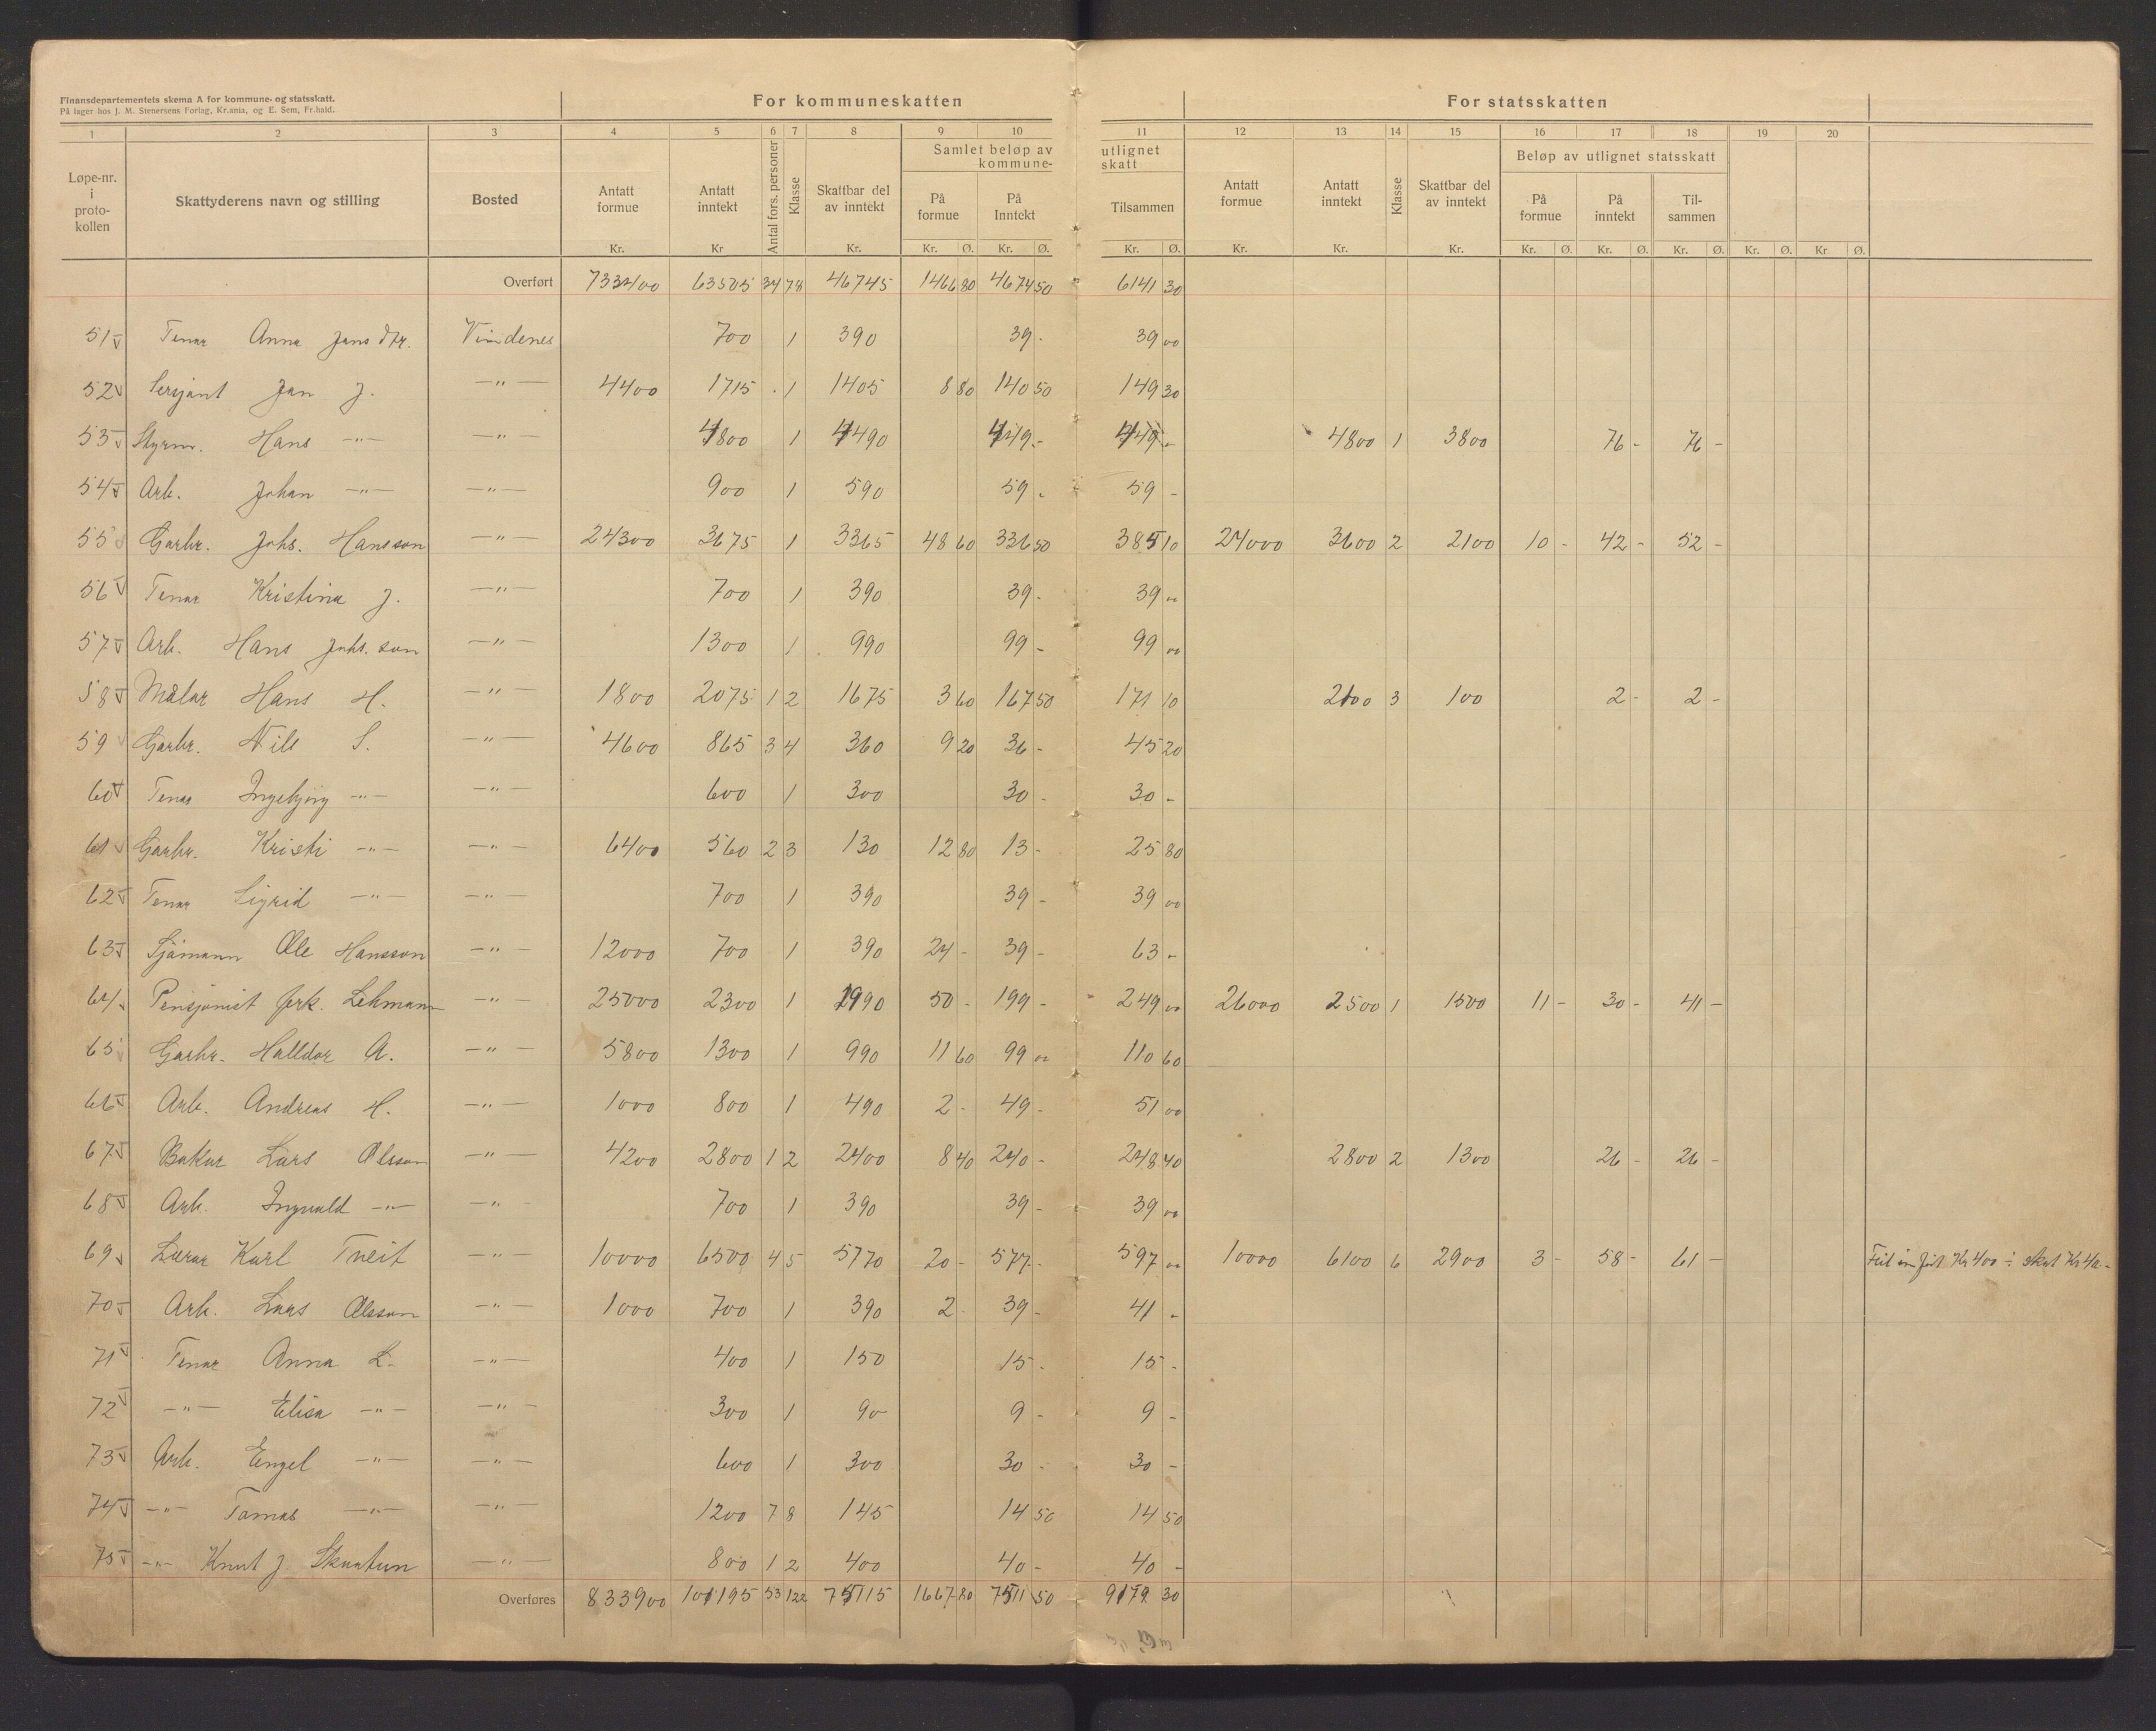 Finansdepartementets skema A for kommune- og statsskatt.
På lager hos J. M. Stenersens Forlag, Kr.ania, og E. Sem, Fr.hald.
For kommuneskatten For statsskatten
1 2 3 4 5 6 7 8 9 10 11 12 13 14 15 16 17 18 19 20
Løpe-nr. i proto- kollen Skattyderens navn og stilling Bosted Antatt formue Antatt inntekt Antal fors. personer Klasse Skattbar del av inntekt Samlet beløp av kommune- På formue På Inntekt utlignet skatt Tilsammen Antatt formue Antatt inntekt Klasse Skattbar del av inntekt Beløp av utlignet statsskatt På formue På inntekt Til- sammen
Kr. Kr Kr. Kr. Ø. Kr. Ø. Kr. Ø. Kr. Kr. Kr. Kr. Ø. Kr. Ø. Kr. Ø. Kr. Ø. Kr Ø.
Overført 733400 63505 34 78 46745 1466 80 4674 50 6141 30
51 Tenar Anna Jansdtr. Vindenes 700 1 390 39 - 39 00
52 Serjant Jan J. —"— 4400 1715 . 1 1405 8 80 140 50 149 30
53 Styrm. Hans —"— —"— 4800 1 4490 449 - 449 - 4800 1 3800 76 - 76 -
54 Arb. Johan —"— —"— 900 1 590 59 - 59 -
55 Garbr. Johs. Hansson —"— 24300 3675 1 3365 48 60 336 50 385 10 24000 3600 2 2100 10 - 42 - 52 -
56 Tenar Kristina J. —"— 700 1 390 39 - 39 00
57 Arb. Hans Johs.son —"— 1300 1 990 99 - 99 00
58 Målar Hans H. —"— 1800 2075 1 2 1675 3 60 167 50 171 10 2100 3 100 2 - 2 -
59 Garbr. Nils S. —"— 4600 865 3 4 360 9 20 36 - 45 20
60 Tenar Ingebjörg —"— —"— 600 1 300 30 - 30 -
61 Garbr. Kristi —"— —"— 6400 560 2 3 130 12 80 13 - 25 80
62 Tenar Sigrid —"— —"— 700 1 390 39 - 39 00
63 Sjömann Ole Hansson —"— 12000 700 1 390 24 - 39 - 63 -
64 Pensjonist frk. Lehmann —"— 25000 2300 1 1990 50 - 199 - 249 00 26000 2500 1 1500 11 - 30 - 41 -
65 Garbr. Halldor A. —"— 5800 1300 1 990 11 60 99 00 110 60
66 Arb. Andreas H. —"— 1000 800 1 490 2 - 49 - 51 00
67 Bakar Lars Olsson —"— 4200 2800 1 2 2400 8 40 240 - 248 40 2800 2 1300 26 - 26 -
68 Arb. Ingvald —"— —"— 700 1 390 39 - 39 00
69 Lærar Karl Tveit —"— 10000 6500 4 5 5770 20 - 577 - 597 00 10000 6100 6 2900 3 - 58 - 61 - Kr 400 ÷ skat Kr 40 -
70 Arb. Lars Olsson —"— 1000 700 1 390 2 - 39 - 41 -
71 Tenar Anna L. —"— 400 1 150 15 - 15 -
72 —"— Elisa —"— —"— 300 1 90 9 - 9 -
73 Arb. Engel —"— —"— 600 1 300 30 - 30 -
74 —"— Tomas —"— —"— 1200 7 8 145 14 50 14 50
75 —"— Knut J. Skaatun —"— 800 1 2 400 40 - 40 -
Overføres 833900 101195 53 122 75115 1667 80 7511 50 9179 30